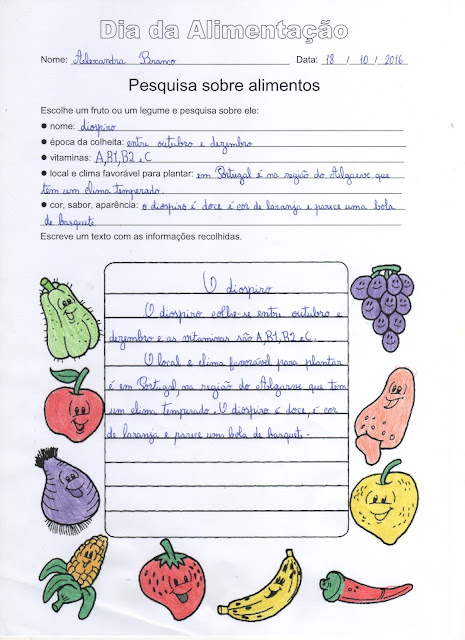 Dia da Alimentação
Nome: Alexandra Branco Data: 18 / 10 / 2016
Pesquisa sobre alimentos
Escolhe um fruto ou um legume e pesquisa sobre ele:
● nome: diospiro
● época da colheita: entre outubro e dezembro
● vitaminas: A,B1,B2 e C
● local e clima favorável para plantar: em Portugal é na região do Algarve que
tem um clima temperado.
● cor, sabor, aparência: o diospiro é doce é cor de laranja e parece uma bola
de basquete
Escreve um texto com as informações recolhidas.
O diospiro
O diospiro colhe-se entre outubro e
dezembro e as vitaminas são A,B1,B2 e C.
O local e clima favorável para plantar
é em Portugal, na região do Algarve que tem
um clima temperado. O diospiro é doce, é cor
de laranja e parece uma bola de basquet.